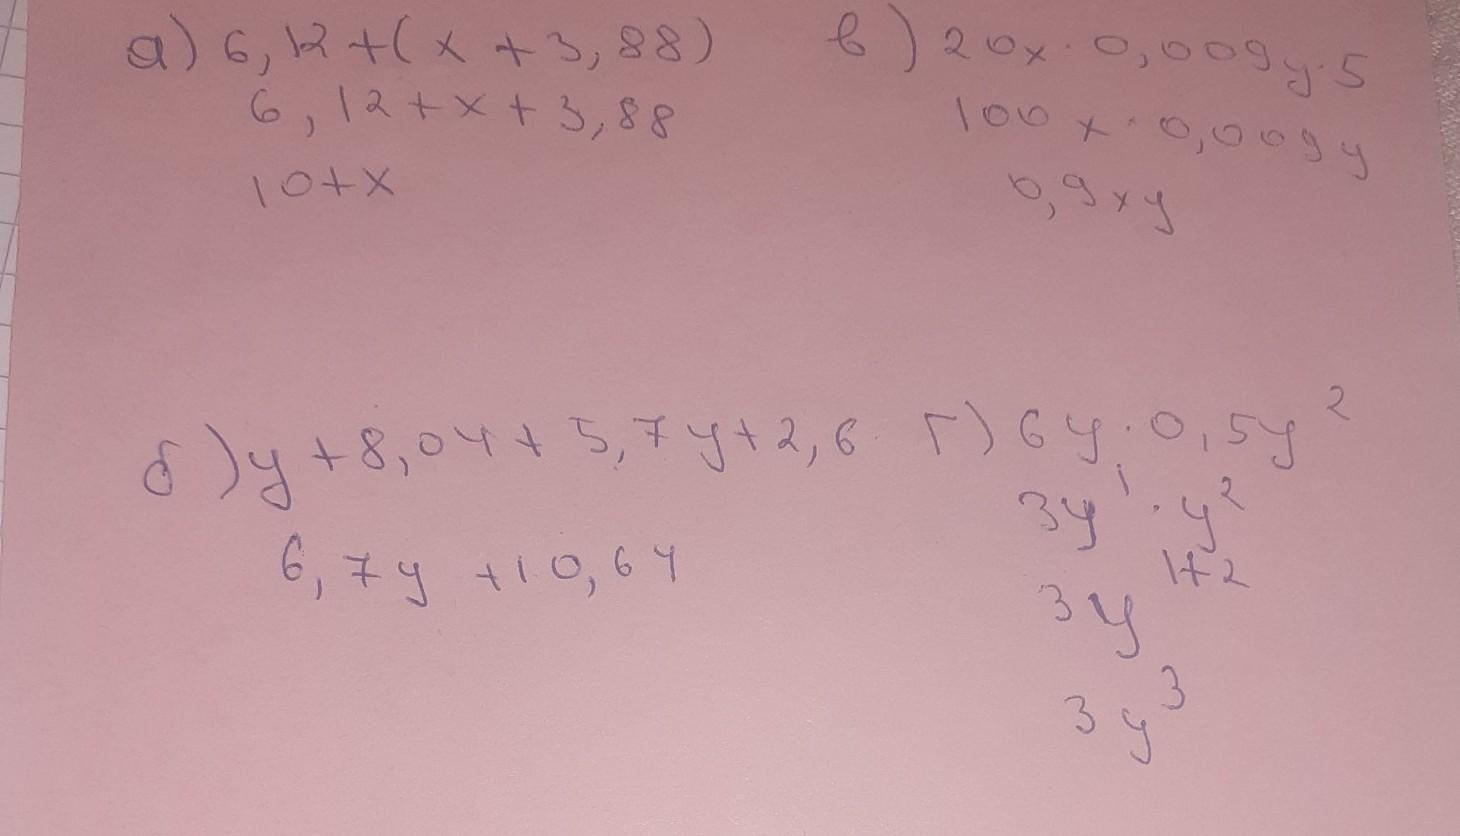 а) 6,12+(x+3,88)
6,12+x+3,88
10+x
в) 20x·0,009y·5
100x·0,009y
0,9xy
б) y+8,04+5,7y+2,6
6,7y+10,64
г) 6y·0,5y²
3y¹·y²
3y¹⁺²
3y³